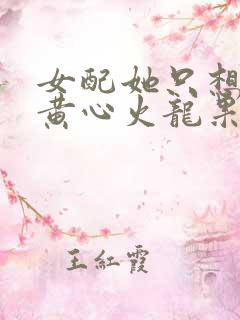 女配她只想
黄心火龍果
王紅霞